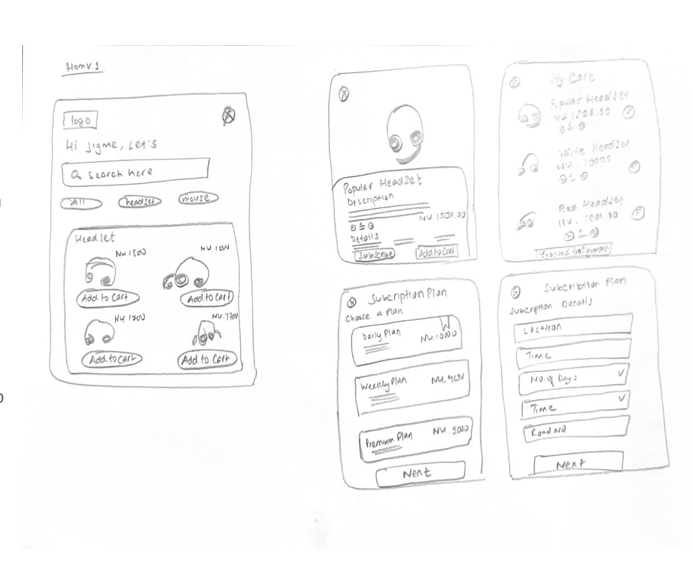 Homv.1
logo
Hi Jigme, Let's
Search here
All headset mouse
Headset
NU.1500
Add to Cart
Add to Cart
NU.1200
Add to Cart
Add to Cart
Popular Headset
Description
NU.1500.00
Details
Subscribe Add to Cart
My Cart
Popular Headset
NU.1500.00
White Headset
Headset
Subscription Plan
Choose a Plan
Daily Plan
Weekly Plan
Premium Plan
Next
Subscription Plan
Subscription Details
Location
Time
No. of Days
Time
Road No
Next